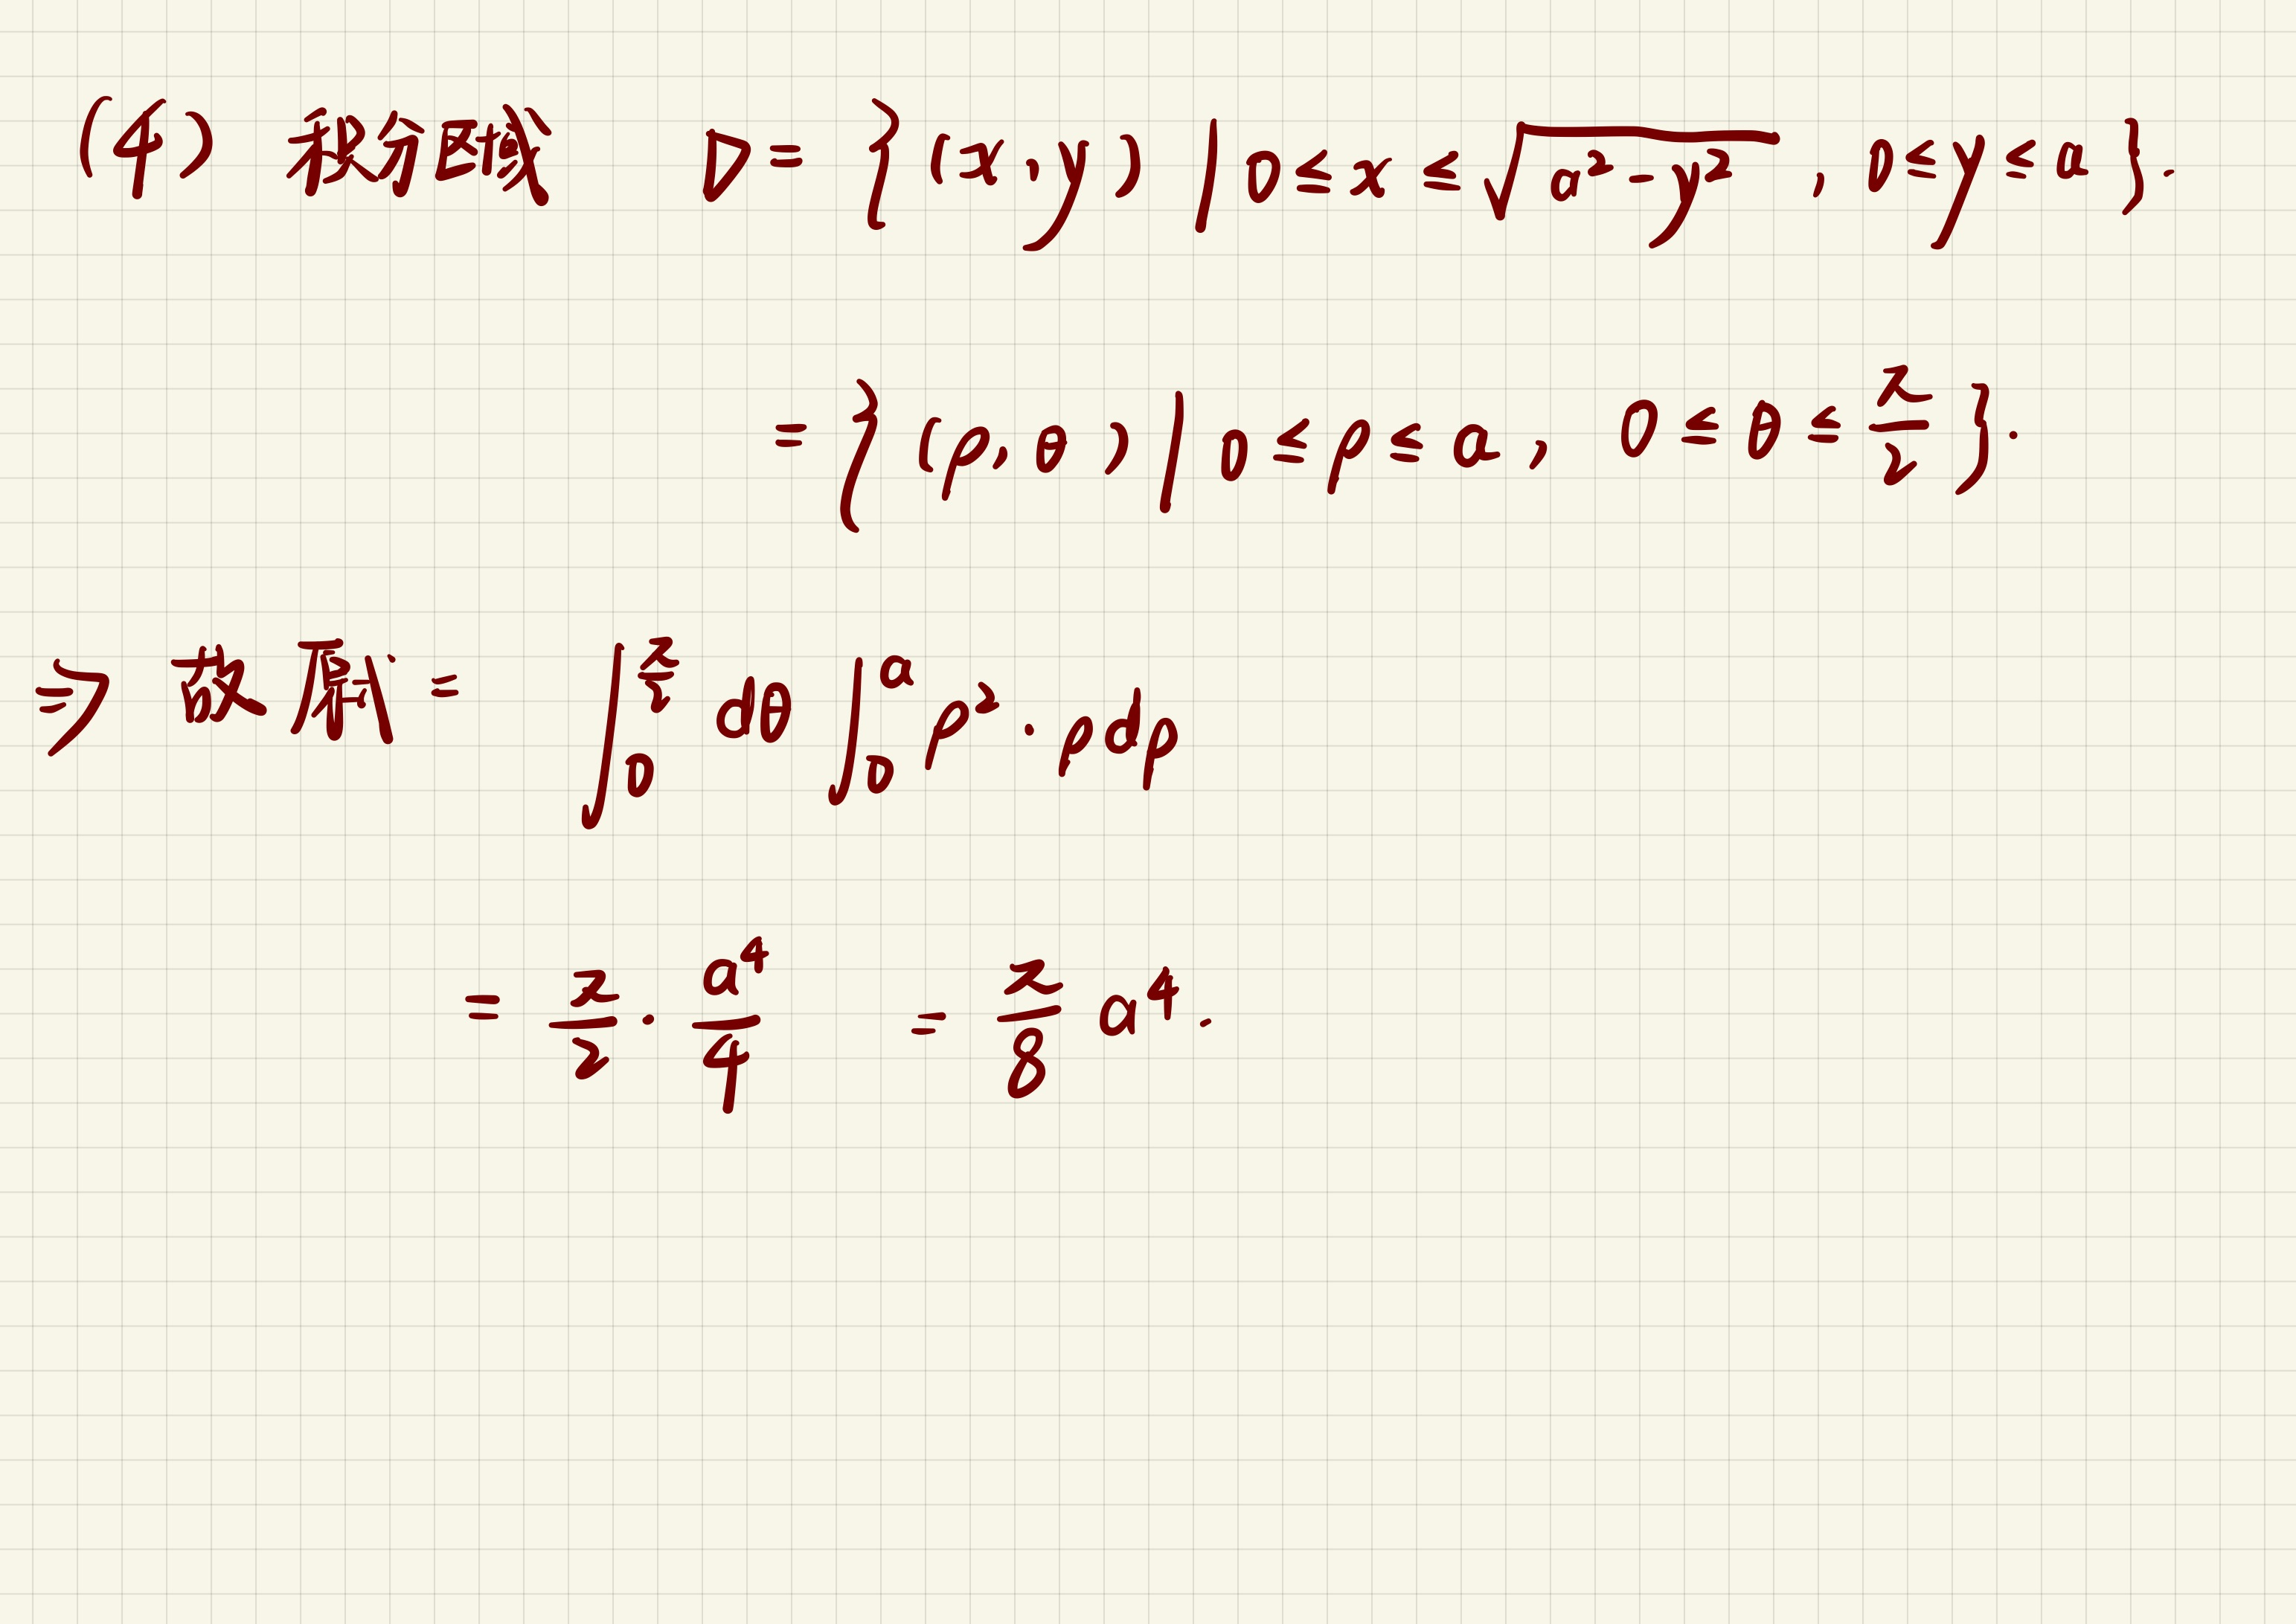 (4) 积分区域 D = { (x, y) | 0 ≤ x ≤ √(a² - y²) , 0 ≤ y ≤ a }.
= { (ρ, θ) | 0 ≤ ρ ≤ a , 0 ≤ θ ≤ π/2 }.
⇒ 故原式 = ∫₀^(π/2) dθ ∫₀^a ρ² · ρdρ
= π/2 · a⁴/4 = π/8 a⁴.